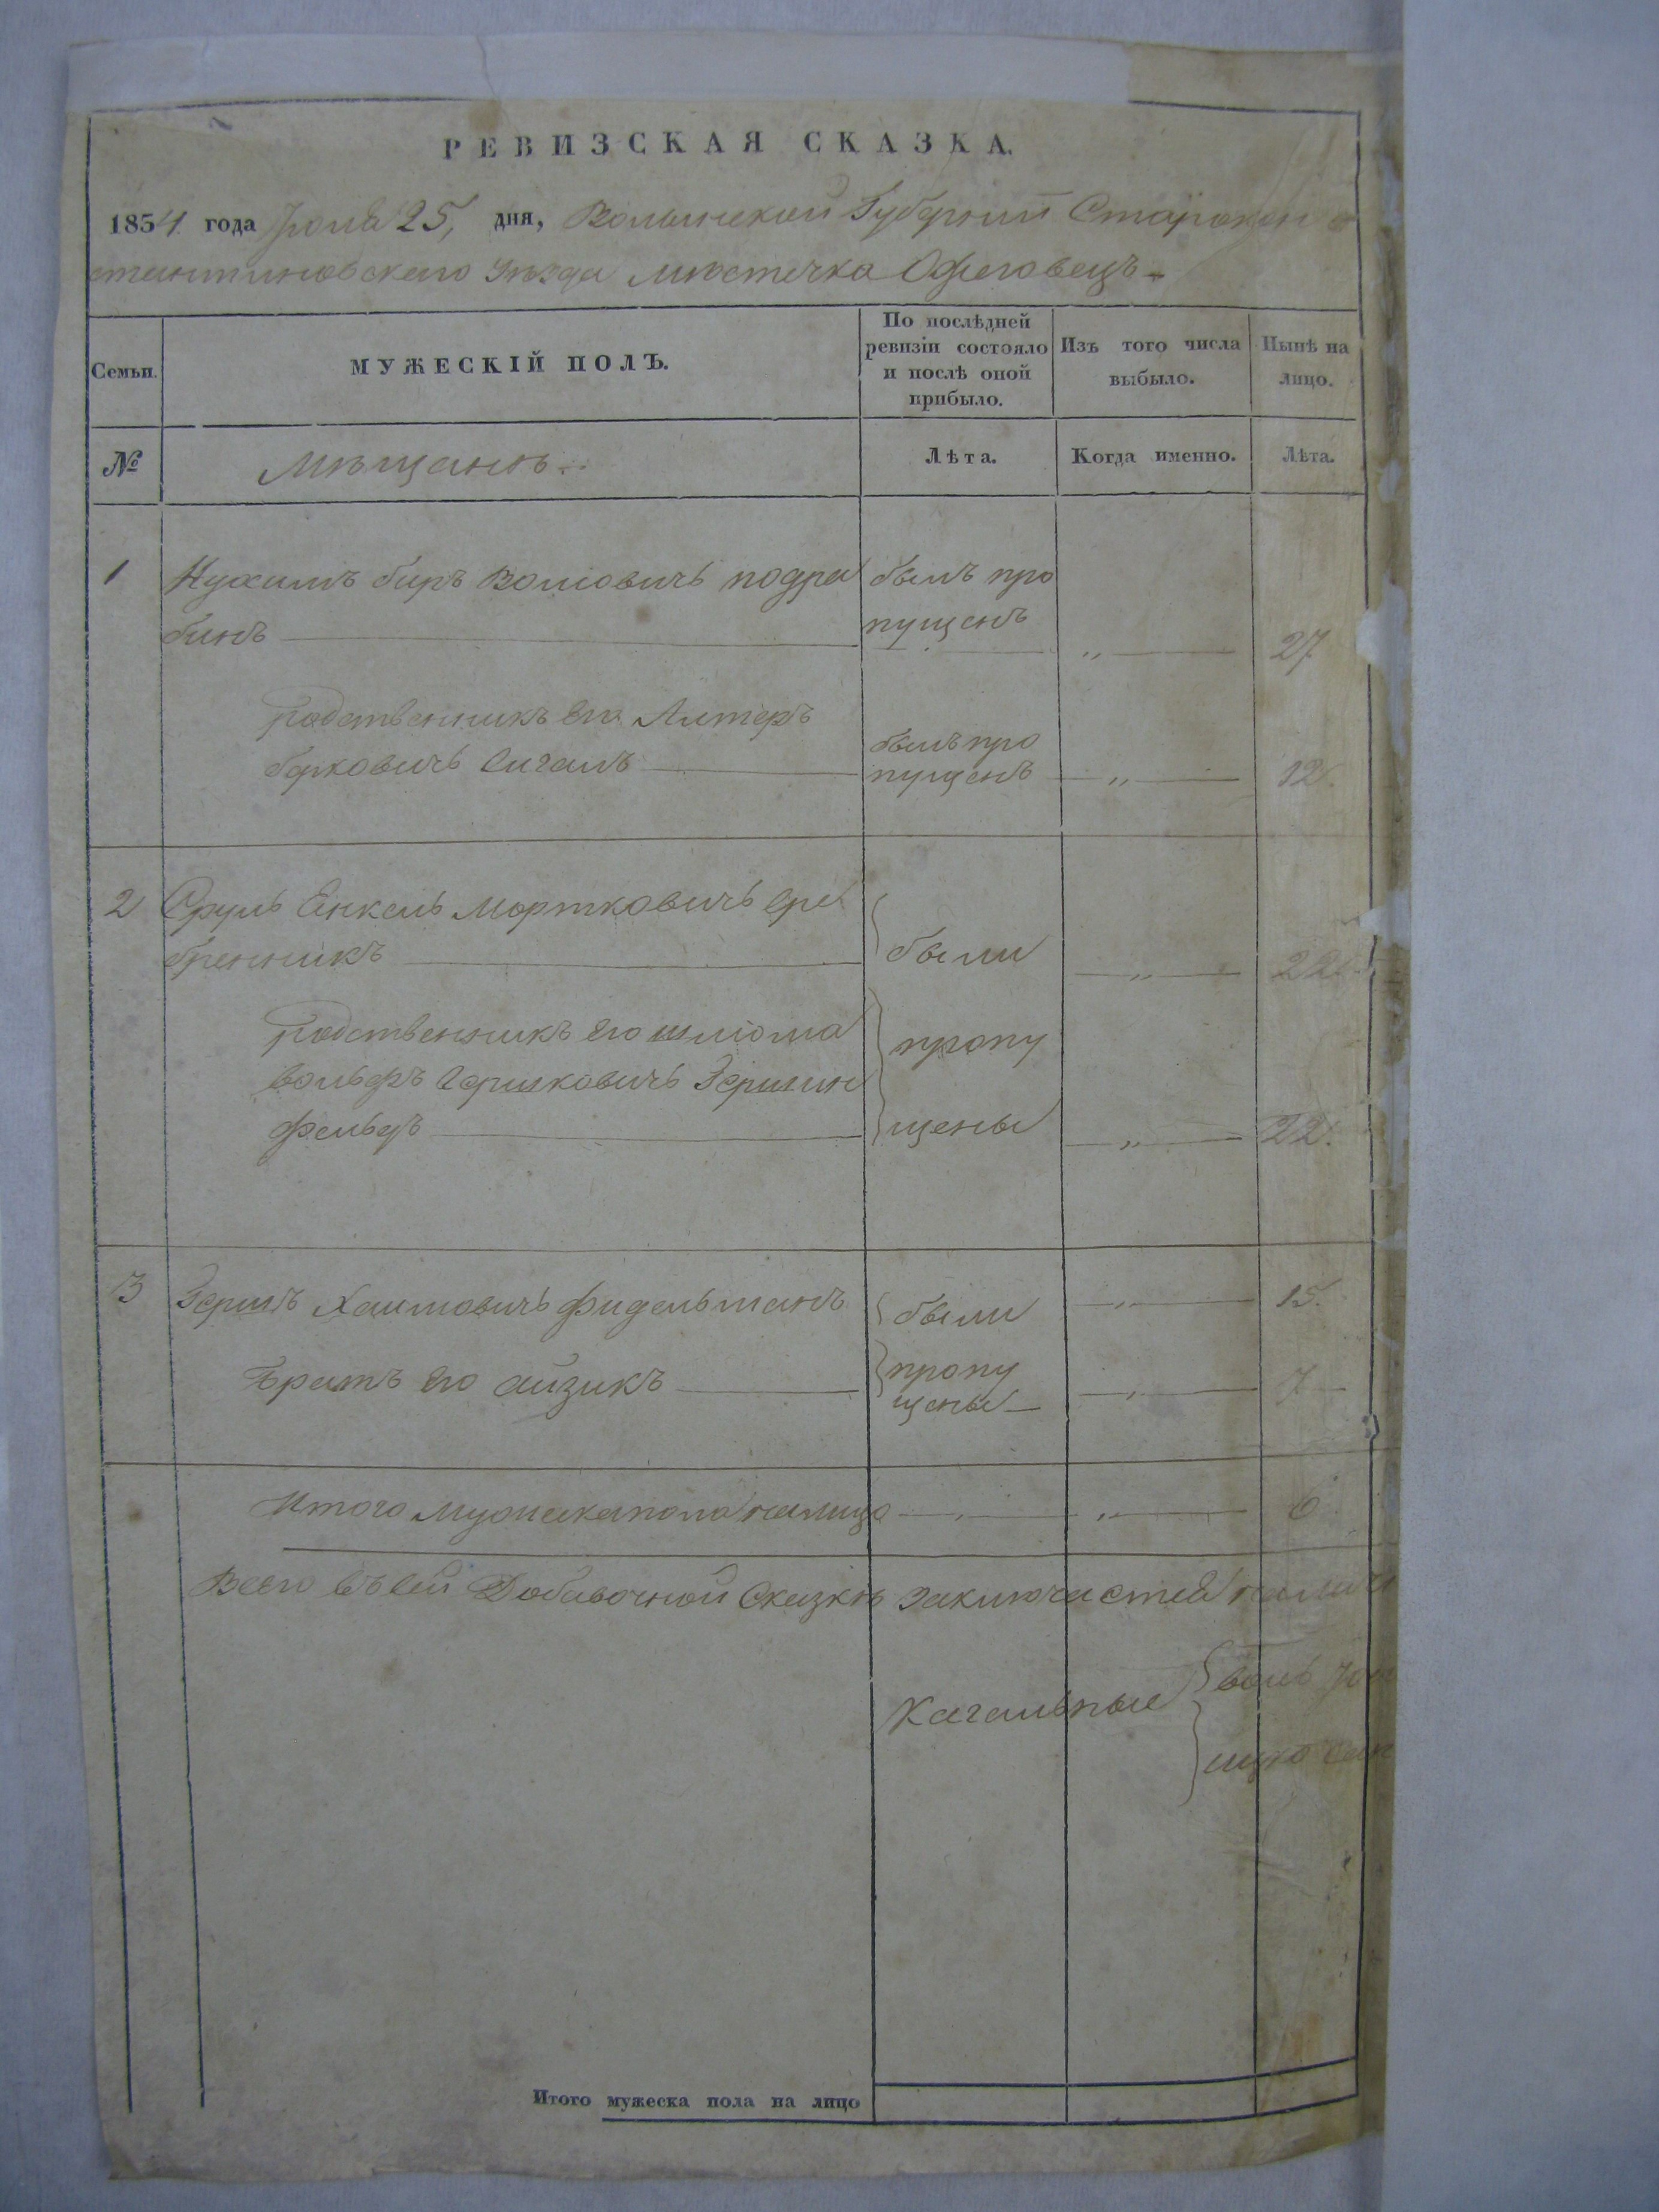 РЕВИЗСКАЯ СКАЗКА.
1854 года Июля 25, дня, Волынской Губернии Старокон
стантиновского уѣзда мѣстечка
Семьи.
МУЖЕСКІЙ ПОЛЪ.
По послѣдней
ревизіи состояло
и послѣ оной
прибыло.
Изъ того числа
выбыло.
Нынѣ на
лицо.
№
Мѣщанъ
Лѣта.
Когда именно.
Лѣта.
1 Нухимъ беръ Волковичъ подра былъ про
бинъ пущенъ „ 27
родственникъ его Литеръ
берковичъ сигалъ былъ про
пущенъ „ 12.
2 Сруль Енкель Мортковичъ сре
бренникъ были „ 22.
родственникъ его шліома пропу
вольфъ Гершковичъ Гершин
фельдъ щены „ 22.
3 Гершъ Хаимовичъ фидельманъ были „ 15.
братъ его айзикъ пропу „ 7
щены
Итого мужеска пола налицо „ „ 6
Всего въ сей Добавочной Сказкѣ заключается
Кагальные
Итого мужеска пола на лицо